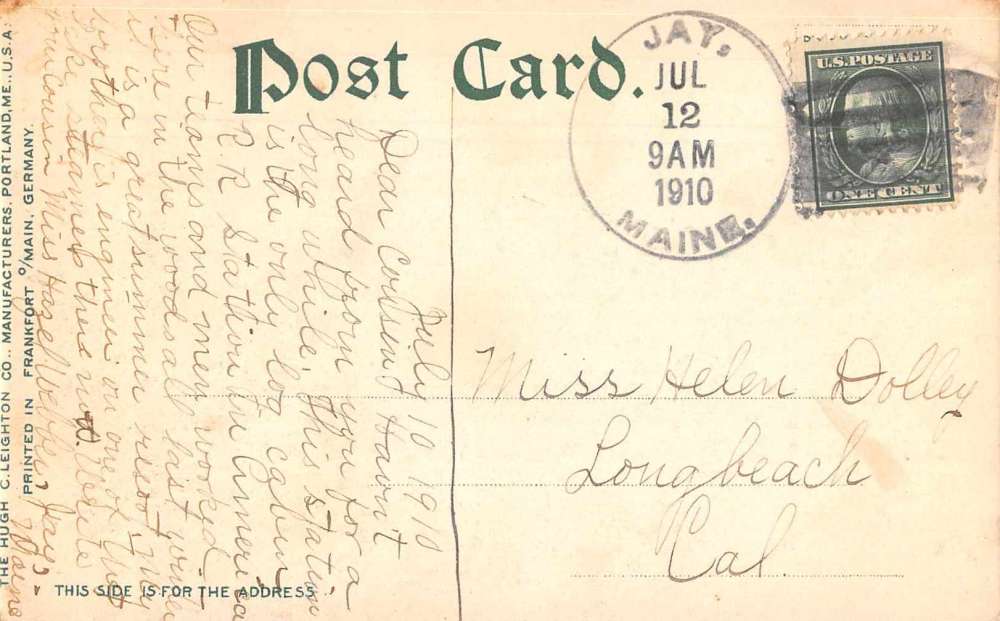 Post Card.
JAY,
JUL
12
9AM
1910
MAINE.
U.S. POSTAGE
ONE CENT
July 10 1910
Dear Cousin I havon't
heard from you for a
long while. This station
is the only log cabin
R. R. Station in America
Our tionys and men worked
here in the woods all last winter
it is a great summer resort. My
brother is engineer on one of
steamers there now. Write
your cousin Miss Hazel Jay,
Maine
Miss Helen Dolley
Longbeach
Cal.
THIS SIDE IS FOR THE ADDRESS
THE HUGH C. LEIGHTON CO., MANUFACTURERS, PORTLAND, ME., U.S.A.
PRINTED IN FRANKFORT O/MAIN, GERMANY.